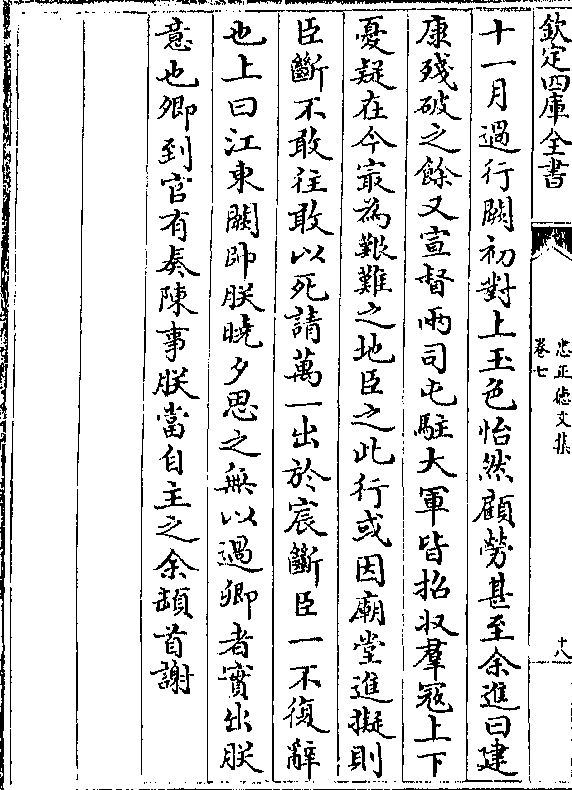 欽定四庫全書
忠正德文集
卷七
十八
十一月過行闕初對上玉色怡然顧勞甚至余進曰建
康殘破之餘又宣督兩司屯駐大軍皆招收羣寇上下
憂疑在今寂為艱難之地臣之此行或因廟堂進擬則
臣斷不敢往敢以死請萬一出於宸斷臣一不復辭
也上曰江東闕帥朕曉夕思之無以過卿者實出朕
意也卿到官有奏陳事朕當自主之余頓首謝